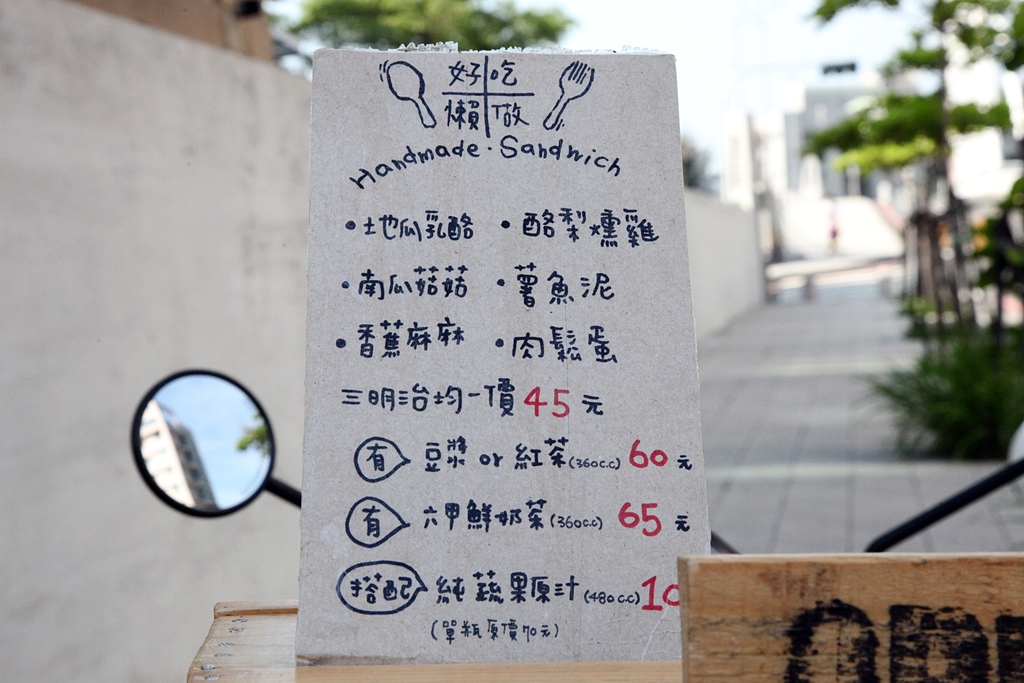 好吃
懶做
Handmade · Sandwich
• 土地瓜乳酪 • 酪梨燻雞
• 南瓜菇菇 • 薯魚泥
• 香蕉麻麻 • 肉鬆蛋
三明治均一價 45 元
有 豆漿 or 紅茶 (360c.c) 60 元
有 六甲鮮奶茶 (360c.c) 65 元
搭配 純蔬果原汁 (480c.c) 10
(單瓶原價70元)